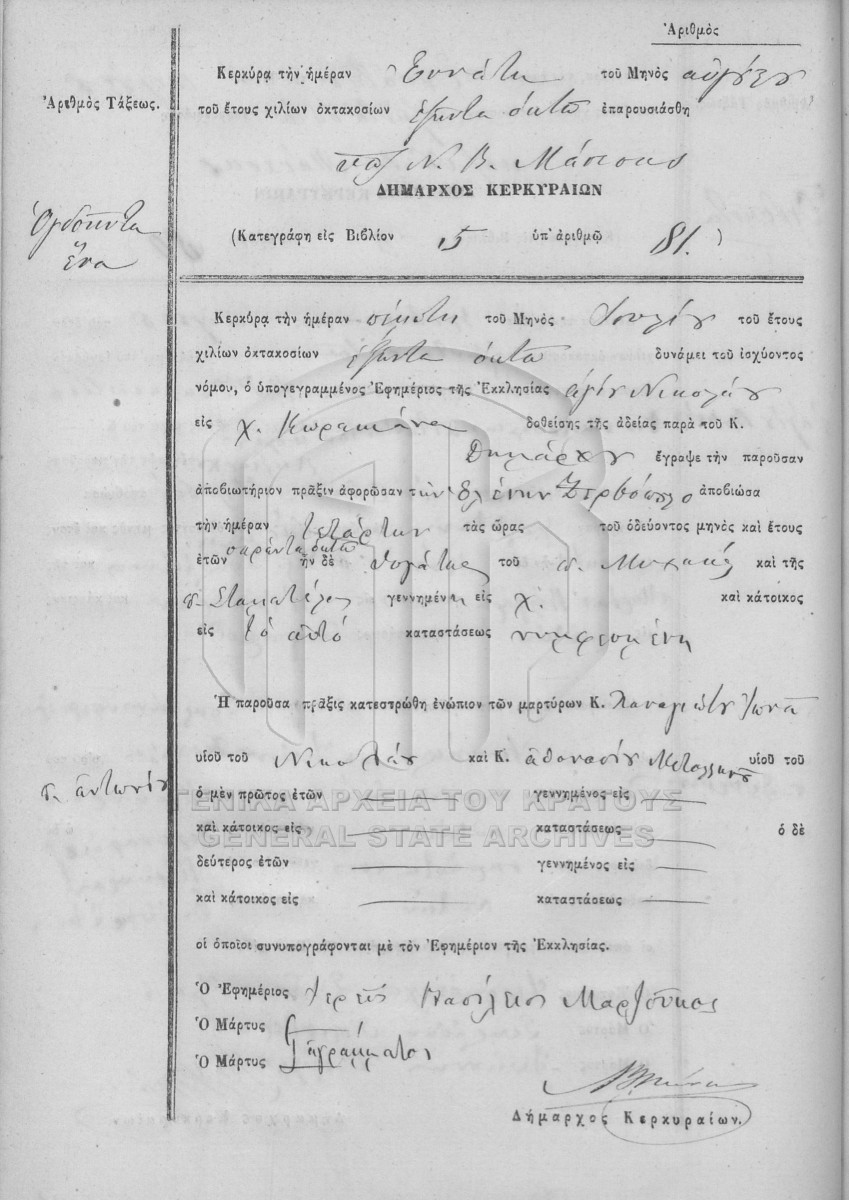 Ἀριθμὸς
Κερκύρᾳ τὴν ἡμέραν Ἐννάτη τοῦ Μηνὸς
Ἀριθμὸς Τάξεως.
τοῦ ἔτους χιλίων ὀκτακοσίων ἑξῆντα ὀκτὼ ἐπαρουσιάσθη
Ν. Β. Μάνεσης
ΔΗΜΑΡΧΟΣ ΚΕΡΚΥΡΑΙΩΝ
Ὀγδοῆντα
ἕνα
(Κατεγράφη εἰς Βιβλίον 15 ὑπ' ἀριθμῷ 81. )
Κερκύρᾳ τὴν ἡμέραν πέμπτη τοῦ Μηνὸς Ἰουλίου τοῦ ἔτους
χιλίων ὀκτακοσίων ἑξῆντα ὀκτὼ δυνάμει τοῦ ἰσχύοντος
νόμου, ὁ ὑπογεγραμμένος Ἐφημέριος τῆς Ἐκκλησίας ἁγίου Νικολάου
εἰς χ. Κωρακιάνα δοθείσης τῆς ἀδείας παρὰ τοῦ Κ.
Δημάρχου ἔγραψε τὴν παροῦσαν
ἀποβιωτήριον πρᾶξιν ἀφορῶσαν τὴν Ἑλένην ἀποβιώσα
τὴν ἡμέραν τετάρτην τὰς ὥρας τοῦ ὁδεύοντος μηνὸς καὶ ἔτους
σαράντα ὀκτὼ
ἐτῶν ἦν δὲ θυγάτηρ τοῦ π. Μιχαὴλ καὶ τῆς
π. Σταματέλας γεννημένη εἰς χ. καὶ κάτοικος
εἰς τὸ αὐτό καταστάσεως νυμφευμένη
Ἡ παροῦσα πρᾶξις κατεστρώθη ἐνώπιον τῶν μαρτύρων Κ. Παναγιώτου Ἰωνᾶ
υἱοῦ τοῦ Νικολάου καὶ Κ. ἀθανασίου Μεταλληνοῦ υἱοῦ τοῦ
π. ἀντωνίου
ὁ μὲν πρῶτος ἐτῶν γεννημένος εἰς
ΓΕΝΙΚΑ ΑΡΧΕΙΑ ΤΟΥ ΚΡΑΤΟΥΣ
καὶ κάτοικος εἰς καταστάσεως ὁ δὲ
GENERAL STATE ARCHIVES
δεύτερος ἐτῶν γεννημένος εἰς
καὶ κάτοικος εἰς καταστάσεως
οἱ ὁποῖοι συνυπογράφονται μὲ τὸν Ἐφημέριον τῆς Ἐκκλησίας.
Ὁ Ἐφημέριος Ἱερεὺς Βασίλειος Μαρτζοῦκος
Ὁ Μάρτυς
Ὁ Μάρτυς ἀγράμματοι
Δήμαρχος Κερκυραίων.